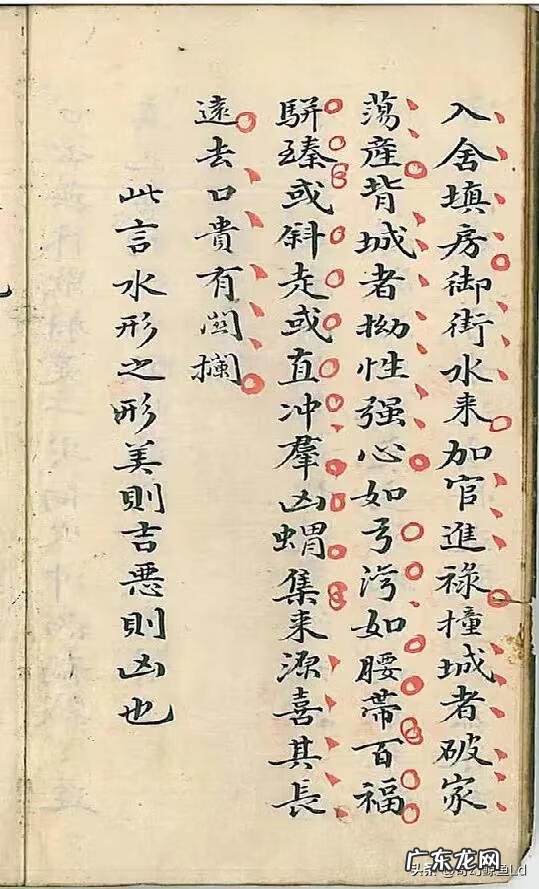 入舍填房御街水来加官進祿撞城者破家
蕩産背城者拗性强心如弓湾如腰帶百福
駢臻或斜走或直冲羣凶蝟集来源喜其長
遠去口貴有関攔
此言水形之形美則吉悪則凶也
广东龙网